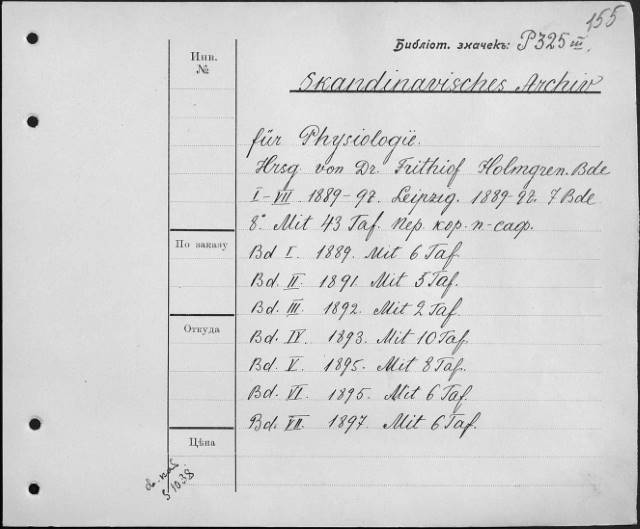 155
Библіот. значекъ: P325 III.
Инв.
№
Skandinavisches Archiv
für Physiologie.
Hrsg von Dr. Frithiof Holmgren. Bde
I-VII 1889-97. Leipzig. 1889-97. 7 Bde
8° Mit 43 Taf. пер. кор. п-саф.
По заказу
Bd I. 1889. Mit 6 Taf.
Bd. II. 1891. Mit 5 Taf.
Bd. III. 1892. Mit 2 Taf.
Откуда
Bd. IV. 1893. Mit 10 Taf.
Bd. V. 1895. Mit 8 Taf.
Bd. VI. 1895. Mit 6 Taf.
Bd. VII. 1897. Mit 6 Taf.
Цѣна
51038